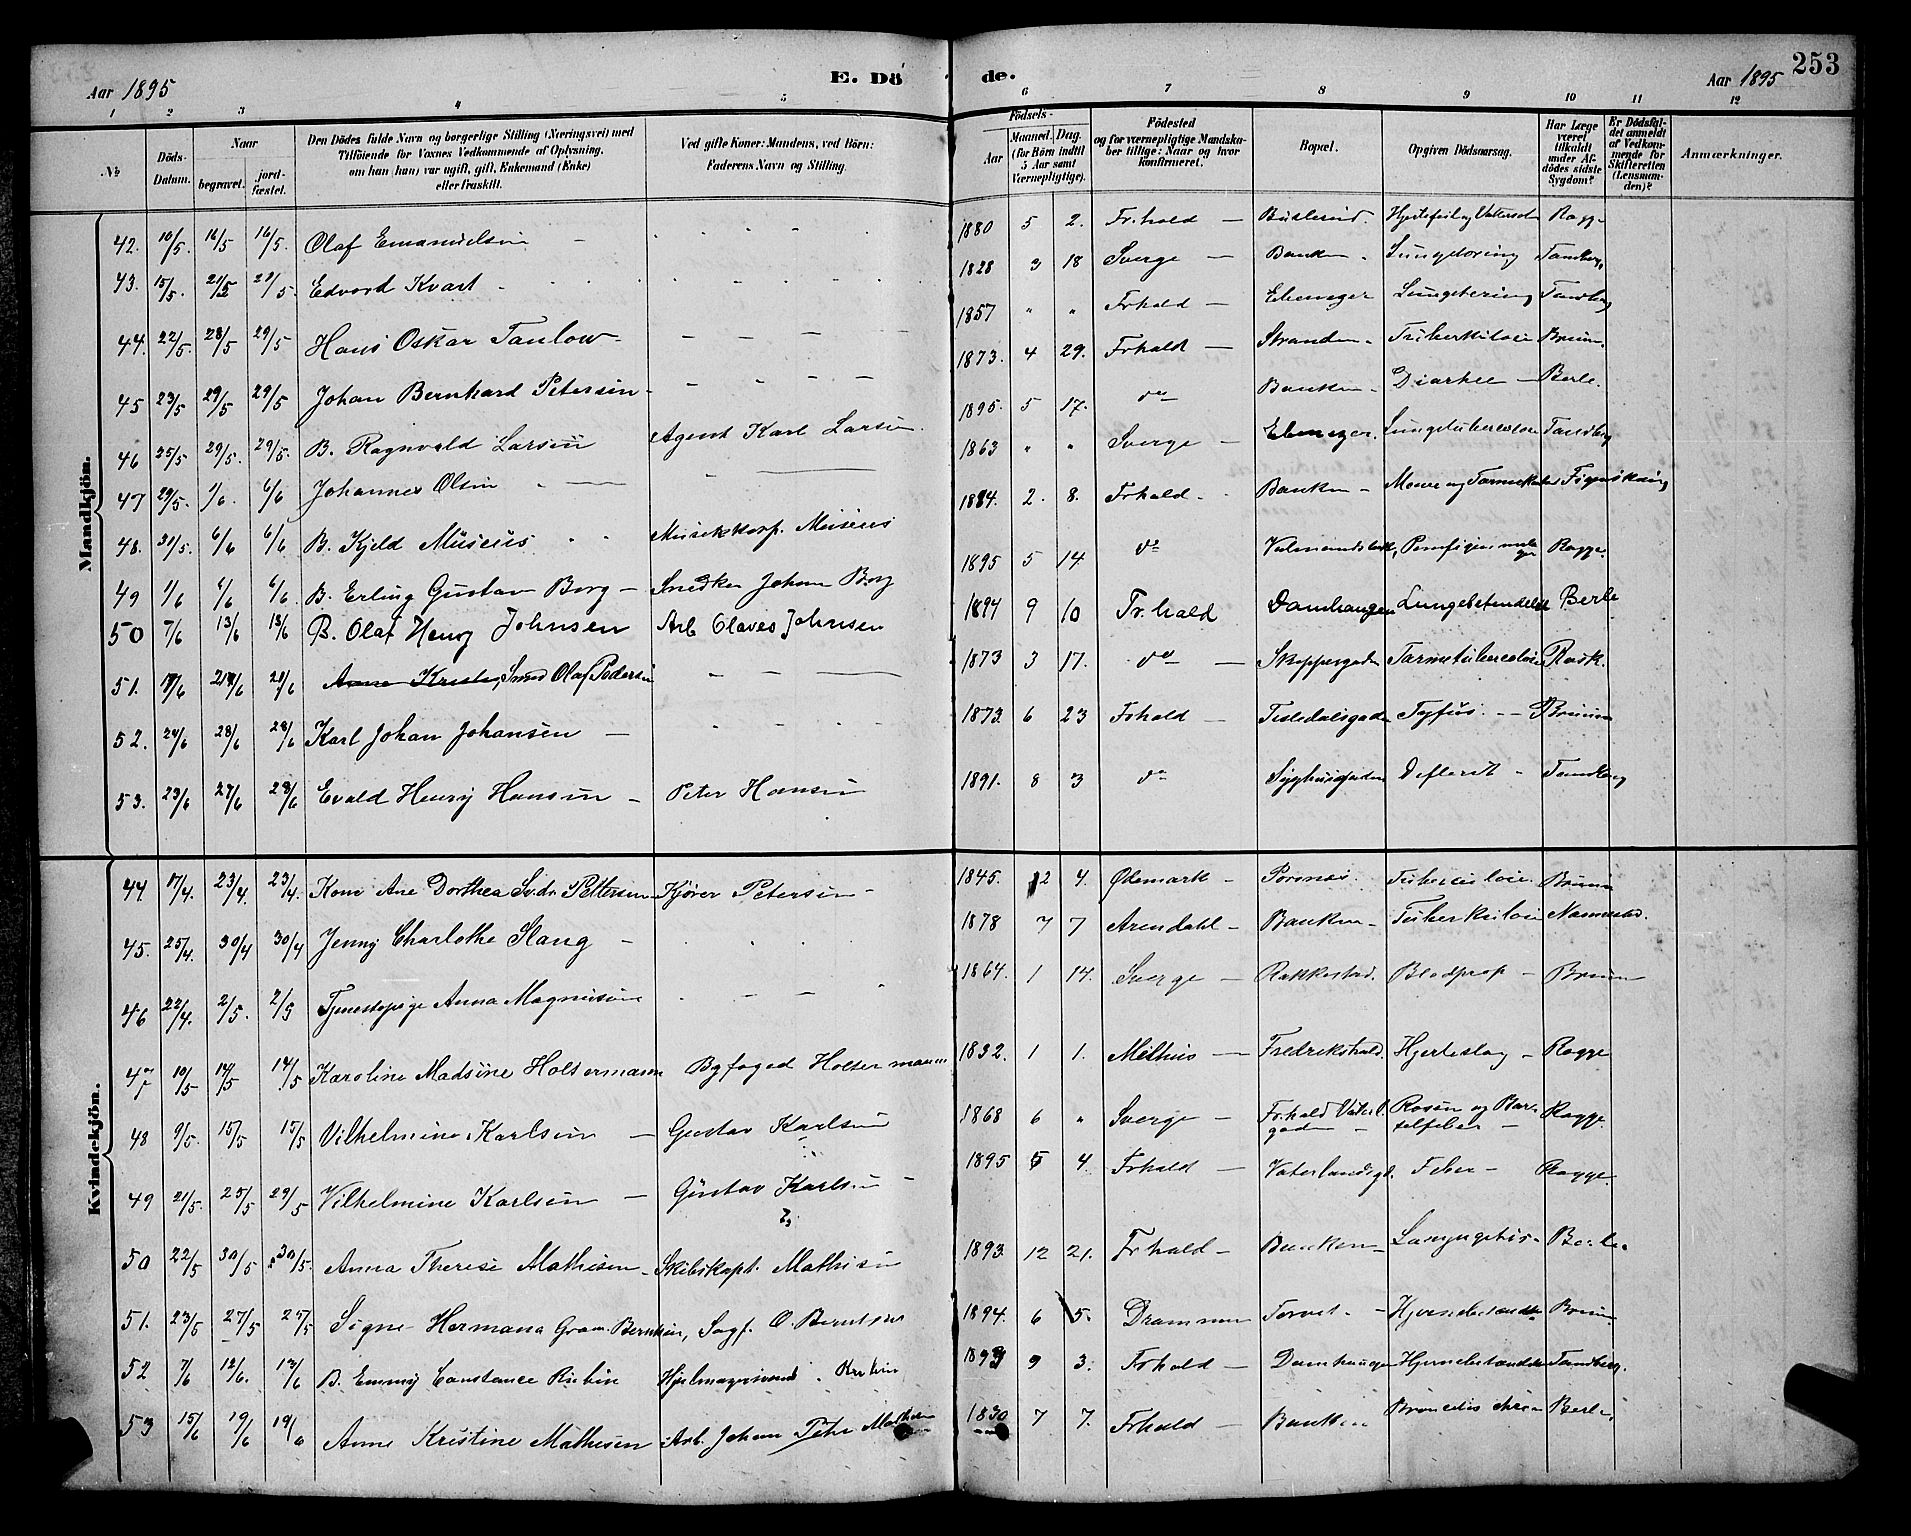 Aar 1895
E. Dö
de.
Aar 1895
253
1 2 3 4 5 6 7 8 9 10 11 12
№
Döds-Datum.
Naar
begravet.
jord-fæstet.
Den Dödes fulde Navn og borgerlige Stilling (Næringsvei) med
Tilföiende for Voxnes Vedkommende af Oplysning,
om han (hun) var ugift, gift, Enkemand (Enke)
eller fraskilt.
Ved gifte Koner: Mandens, ved Börn:
Faderens Navn og Stilling.
Födsels-
Aar
Maaned.
Dag.
(for Börn indtil
5 Aar samt
Værnepligtige).
Födested
og for værnepligtige Mandska-
ber tillige: Naar og hvor
konfirmeret.
Bopæl.
Opgiven Dödsaarsag.
Har Læge
været
tilkaldt
under Af-
dödes sidste
Sygdom?
Er Dödsfal-
det anmeldt
af Vedkom-
mende for
Skifteretten
(Lensman-
den)?
Anmærkninger.
Mandkjön.
42. 10/5. 16/5 16/5. Olaf Emanuelsen 1880 5 2. Fr.hald Buslerud. Hjertefeil og Vattersot Rogge
43. 15/5. 21/5 21/5. Edvard Kvast 1828 3 18 Sverge Banken Tandberg
44. 22/5. 28/5 29/5 Hans Oskar Taulow 1857 " " Frhald Ebeneser Tandberg
45 23/5 29/5 29/5 Johan Bernhard Petersen 1873. 4 29. Frhald Stranden Bruun.
46 25/5 29/5. 29/5. B. Ragnvald Larsen Agent Karl Larsen 1895. 5 17. do Banken Diarhee Berle.
47 29/5. 1/6. 6/6 Johannes Olsen 1863 " " Sverge Ebeneser. Lungetuberculose Tandberg
48. 31/5. 6/6 6/6 B. Kjeld Museus Musikkorp. Museus 1884. 2. 8. Frhald. Banken
49 1/6 6/6 6/6. B. Erling Gustav Borg Snedker Johan Borg 1895 5 14 do Rogge.
50 7/6 13/6 13/6 B. Olaf Henry Johnsen Arb Olaves Johnsen 1894 9 10 Fr.hald Damhaugen Lungebetændelse Berle
51. 17/6 21/6 21/6 Anne Kristi, Smed Olaf Pedersen 1873 3 17. do Skeppergaden Tarmetuberculose Rask.
52. 24/6 28/6 28/6 Karl Johan Johansen 1873. 6 23 Frhald Tistedalsgaden Tyfus. Bruun
53. 23/6 27/6 28/6 Evald Henry Hansen Peter Hansen 1891. 8 3 do Syghusgaden Defterit Tandberg
Kvindekjön.
44 17/4. 23/4 23/4. Kone Ane Dorthea Pettersen Kjører Petersen 1845. 12 4. Ødemark Porsnes. Tuberculose. Bruun
45. 25/4. 30/4 30/4 Jenny Charlothe Stang 1878 7 7 Arendahl Banken
46 22/4. 2/5. 2/5 Tjenestepige Anna Magnusen 1864. 1 14. Sverge Rakkestad. Blodprop Bruun
47 10/5 14/5 14/5 Karoline Madsine Holtermann Byfoged Holtermann 1832. 1 1. Melhus Fredrikshald. Hjerteslag Rogge
48 9/5. 15/5 15/5 Vilhelmine Karlsen Gustav Karlsen 1868 6 " Sverge Frhald Vaterl. gaden Rosen og Bar-selfeber Rogge.
49 21/5. 25/5 29/5 Vilhelmine Karlsen Gustav Karlsen 1895 5 4. Frhald Vaterlandsgd. Feber Rogge.
50 22/5 30/5 30/5. Anna Therese Mathisen Skibskapt. Mathisen 1893. 12 21. Frhald Banken Berle.
51. 23/5 27/5 27/5 Signe Hermana Gram Berntsen, Sagf. O. Berntsen 1894. 6 5. Drammen Torvet. Hjernebetændelse Bruun
52 7/6 12/6. 13/6 B. Emmy Constance Rubin 9 3. Frhald Damhaugen Hjernebetændelse Tandberg.
53 15/6 19/6 19/6 Anne Kristine Mathisen Arb. Johan Peter Mathisen 1830 7 7. Frhald Banken Berle